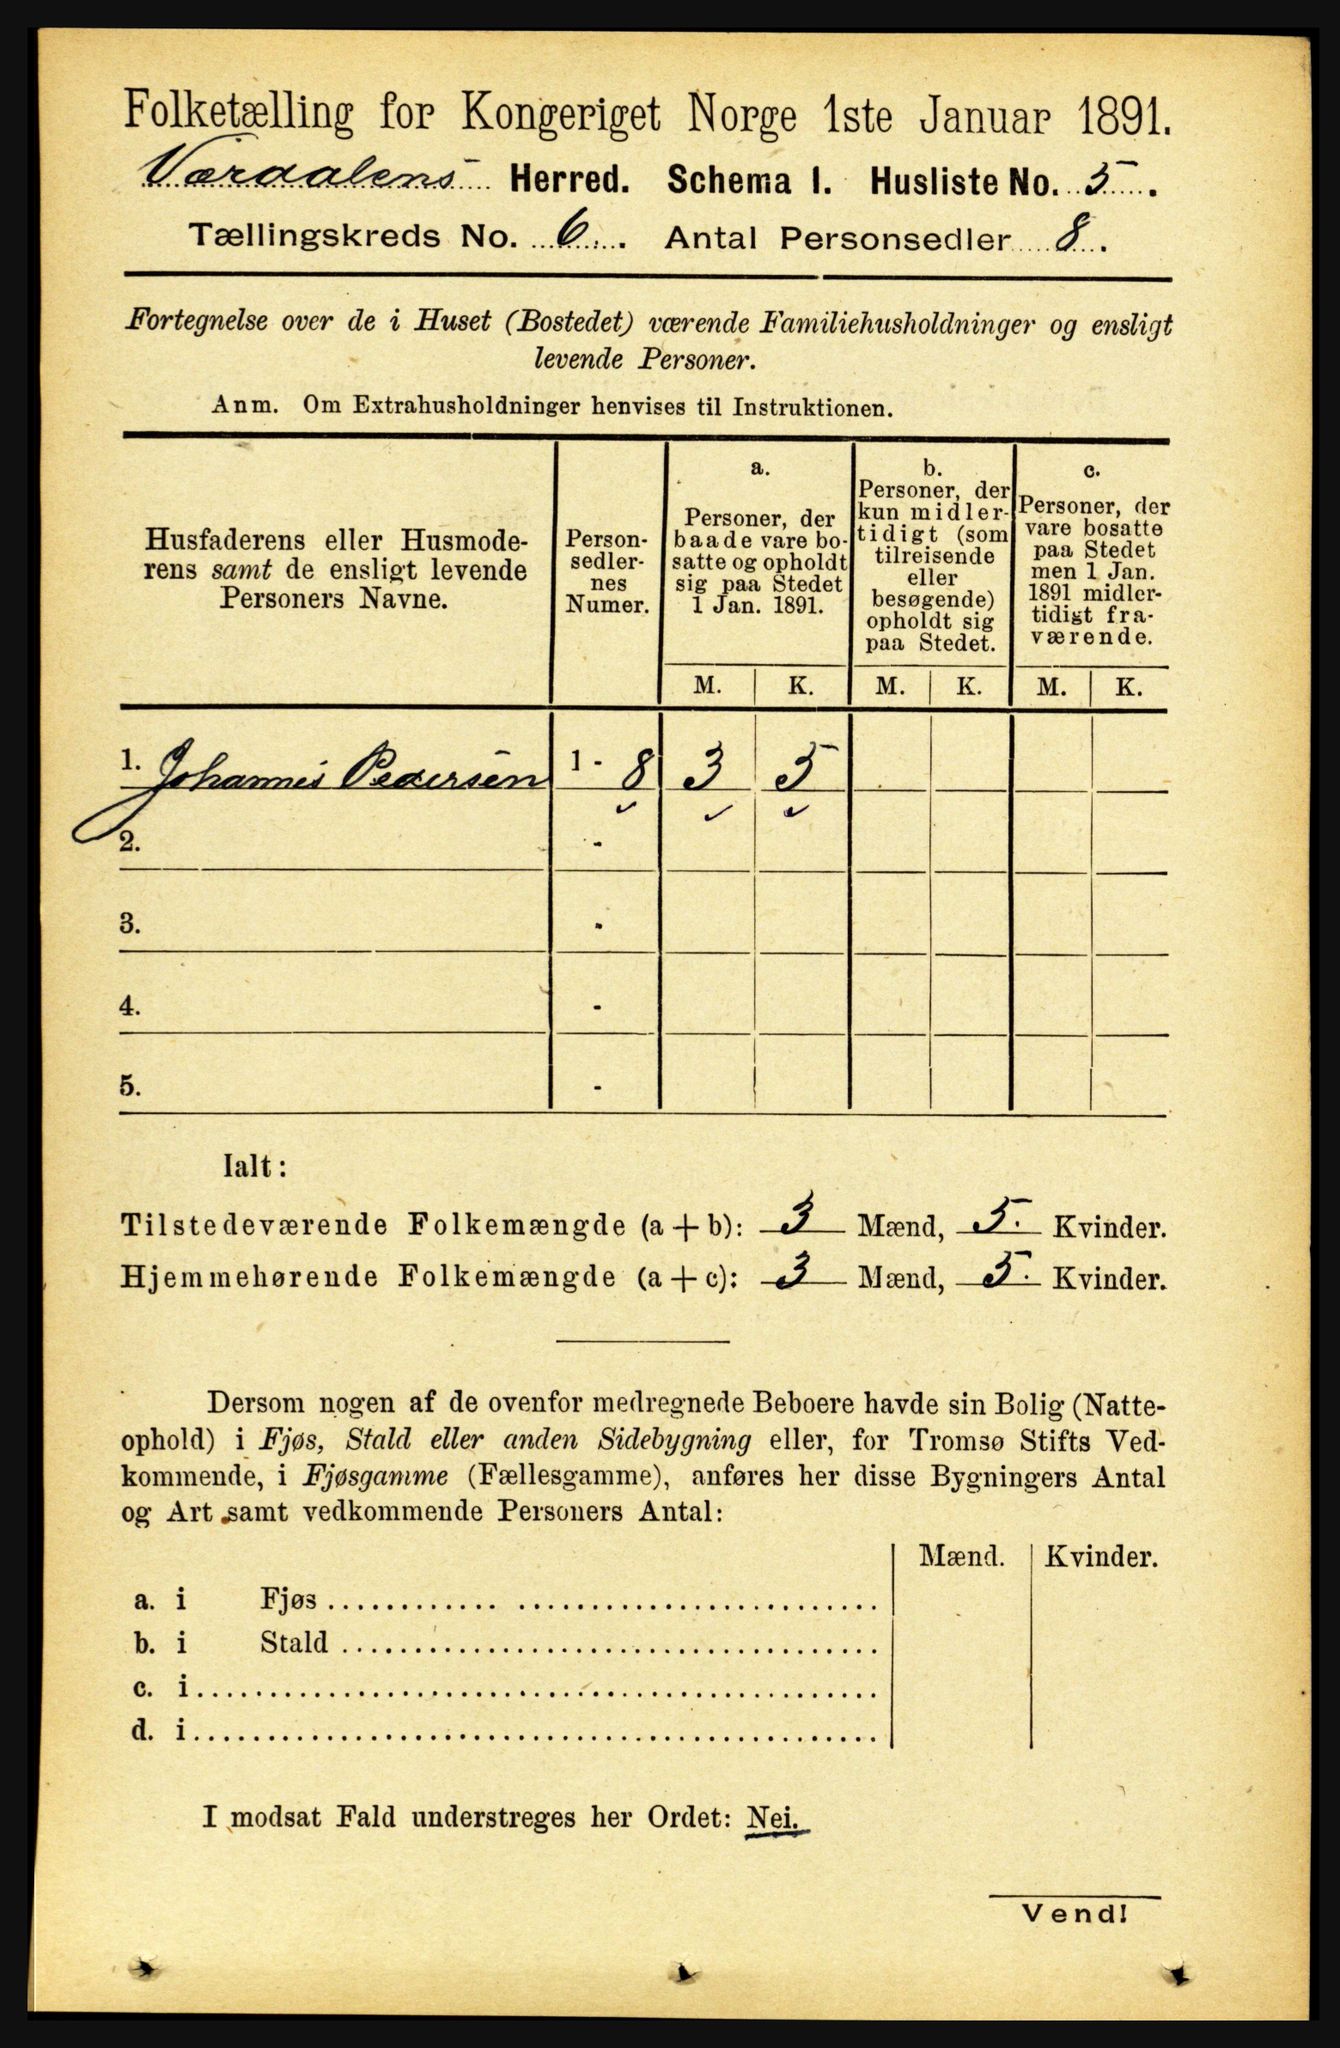 Folketælling for Kongeriget Norge 1ste Januar 1891.
Værdalens Herred. Schema I. Husliste No. 5.
Tællingskreds No. 6. Antal Personsedler 8.
Fortegnelse over de i Huset (Bostedet) værende Familiehusholdninger og ensligt
levende Personer.
Anm. Om Extrahusholdninger henvises til Instruktionen.
Husfaderens eller Husmode-
rens samt de ensligt levende
Personers Navne.
Person-
sedler-
nes
Numer.
a.
Personer, der
baade vare bo-
satte og opholdt
sig paa Stedet
1 Jan. 1891.
b.
Personer, der
kun midler-
tidigt (som
tilreisende
eller
besøgende)
opholdt sig
paa Stedet.
c.
Personer, der
vare bosatte
paa Stedet
men 1 Jan.
1891 midler-
tidigt fra-
værende.
M. K. M. K. M. K.
1. Johannes Pedersen 1 - 8 3 5
2. -
3. -
4. -
5. -
Ialt:
Tilstedeværende Folkemængde (a + b): 3 Mænd, 5. Kvinder.
Hjemmehørende Folkemængde (a + c): 3 Mænd, 5. Kvinder.
Dersom nogen af de ovenfor medregnede Beboere havde sin Bolig (Natte-
ophold) i Fjøs, Stald eller anden Sidebygning eller, for Tromsø Stifts Ved-
kommende, i Fjøsgamme (Fællesgamme), anføres her disse Bygningers Antal
og Art samt vedkommende Personers Antal:
Mænd. Kvinder.
a. i Fjøs
b. i Stald
c. i
d. i
I modsat Fald understreges her Ordet: Nei.
Vend!